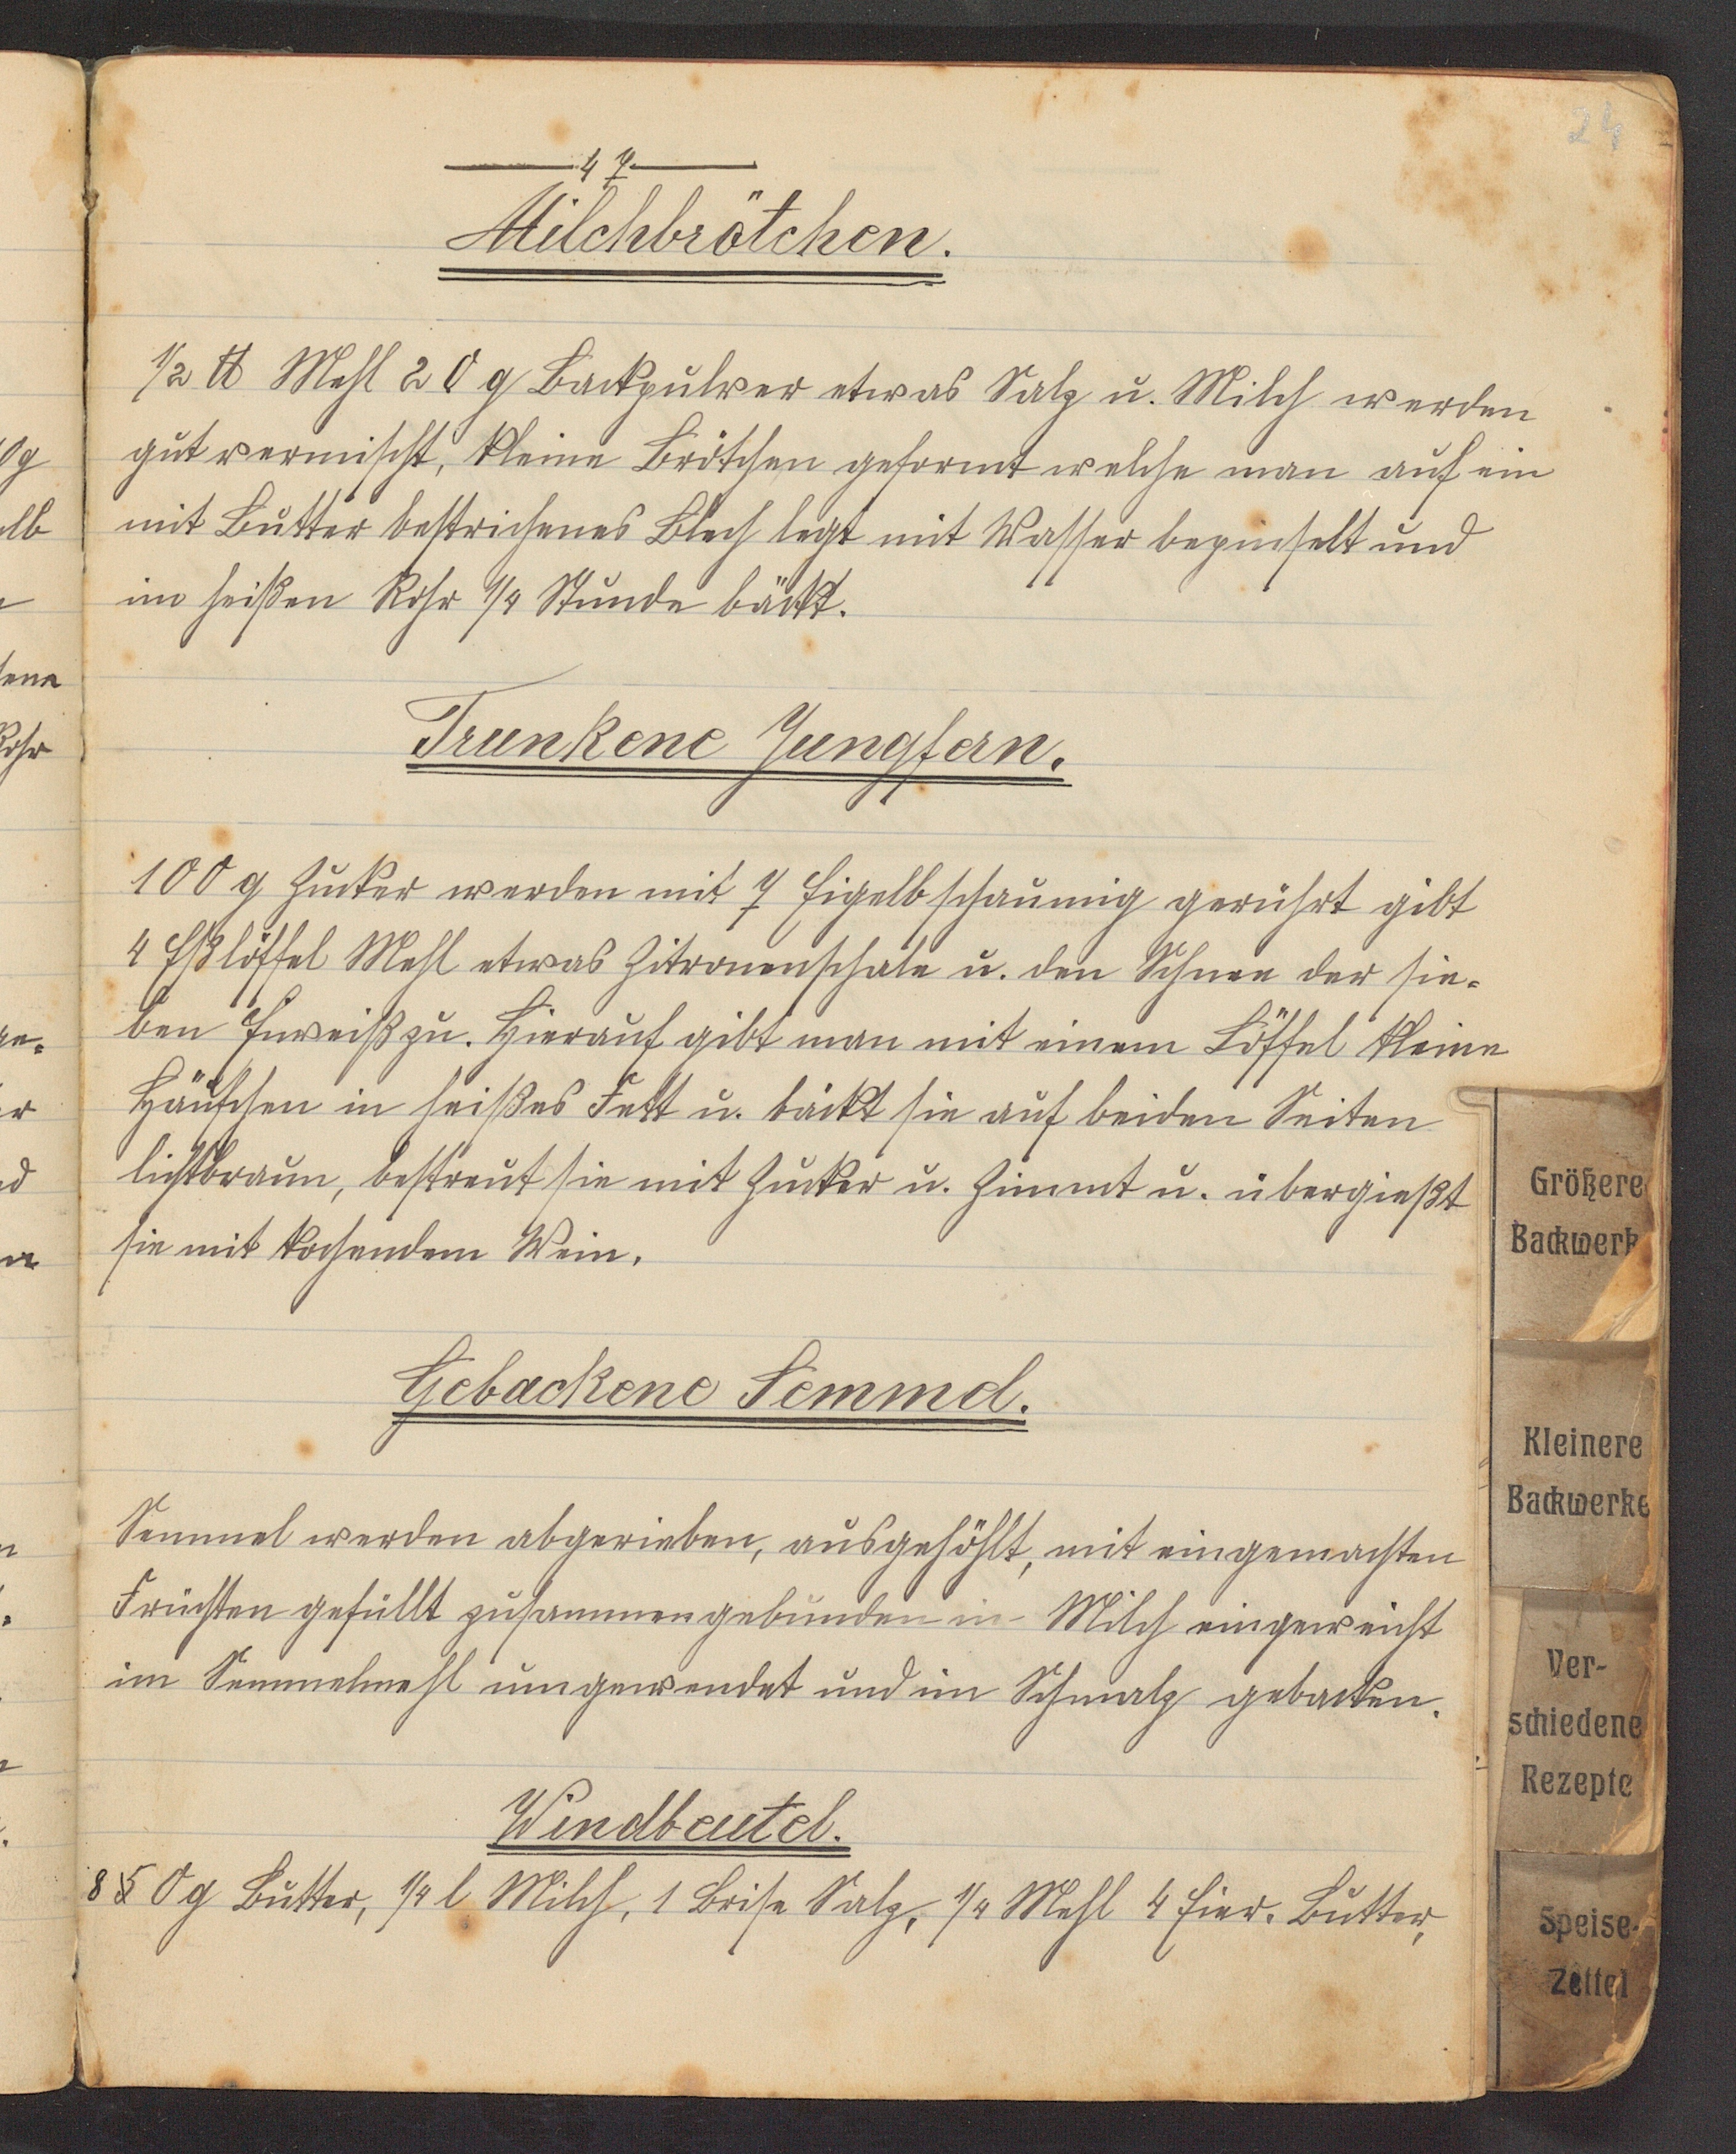 24
47
Milchbrötchen.
1/2 ℔ Mehl 20 g Backpulver etwas Salz u. Milch werden
gut vermischt, kleine Brötchen geformt welche man auf ein
mit Butter bestrichenes Blech legt mit Wasser bepinselt und
im heißen Rohr 1/4 Stunde bäckt.
Trunkene Jungfern.
100 g Zucker werden mit 7 Eigelb schaumig gerührt gibt
4 Eßlöffel Mehl etwas Zitronenschale u. den Schnee der sie-
ben Eiweiß zu. Hierauf gibt man mit einem Löffel kleine
Häufchen in heißes Fett u. bäckt sie auf beiden Seiten
lichtbraun, bestreut sie mit Zucker u. Zimmt u. übergießt
sie mit kochendem Wein.
Gebackene Semmel.
Semmel werden abgerieben, ausgehöhlt, mit eingemachten
Früchten gefüllt zusammengebunden in Milch eingeweicht
im Semmelmehl umgewendet und im Schmalz gebacken.
Windbeutel.
80 g Butter, 1/4 l Milch, 1 Brise Salz, 1/4 Mehl 4 Eier. Butter,
Größere
Backwerk
Kleinere
Backwerke
Ver-
schiedene
Rezepte
Speise-
Zettel